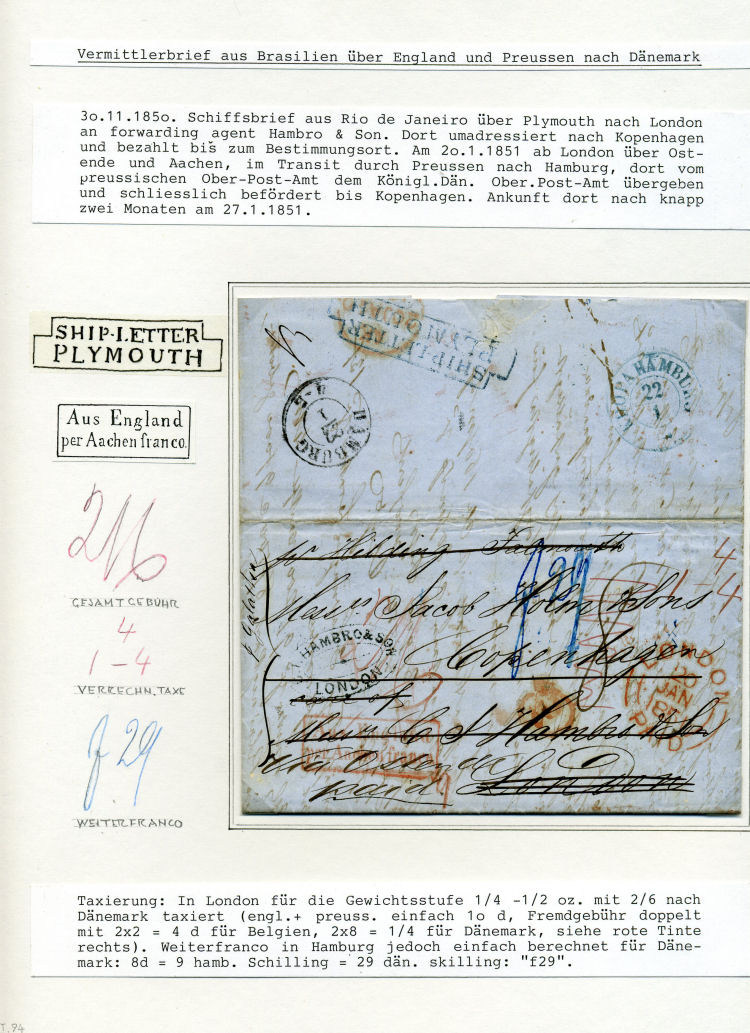 Vermittlerbrief aus Brasilien über England und Preussen nach Dänemark
3o.11.185o. Schiffsbrief aus Rio de Janeiro über Plymouth nach London
an forwarding agent Hambro & Son. Dort umadressiert nach Kopenhagen
und bezahlt bis zum Bestimmungsort. Am 2o.1.1851 ab London über Ost-
ende und Aachen, im Transit durch Preussen nach Hamburg, dort vom
preussischen Ober-Post-Amt dem Königl.Dän. Ober.Post-Amt übergeben
und schliesslich befördert bis Kopenhagen. Ankunft dort nach knapp
zwei Monaten am 27.1.1851.
SHIP-LETTER
PLYMOUTH
Aus England
per Aachen franco.
2/6
GESAMTGEBÜHR
4
1-4
VERRECHN.TAXE
f 29
WEITERFRANCO
SHIP-LETTER
PLYMOUTH
HAMBURG
HAMBURG
22
1
per Hilding Falmouth
4
1-4
f 29
Messrs Jacob Holm & Sons
Copenhagen
HAMBRO & SON
LONDON
LONDON
20
JAN
PAID
care of
Messrs C J Hambro & Son
per Aachen franco
via Ostende
paid London
Taxierung: In London für die Gewichtsstufe 1/4 -1/2 oz. mit 2/6 nach
Dänemark taxiert (engl.+ preuss. einfach 1o d, Fremdgebühr doppelt
mit 2x2 = 4 d für Belgien, 2x8 = 1/4 für Dänemark, siehe rote Tinte
rechts). Weiterfranco in Hamburg jedoch einfach berechnet für Däne-
mark: 8d = 9 hamb. Schilling = 29 dän. skilling: "f29".